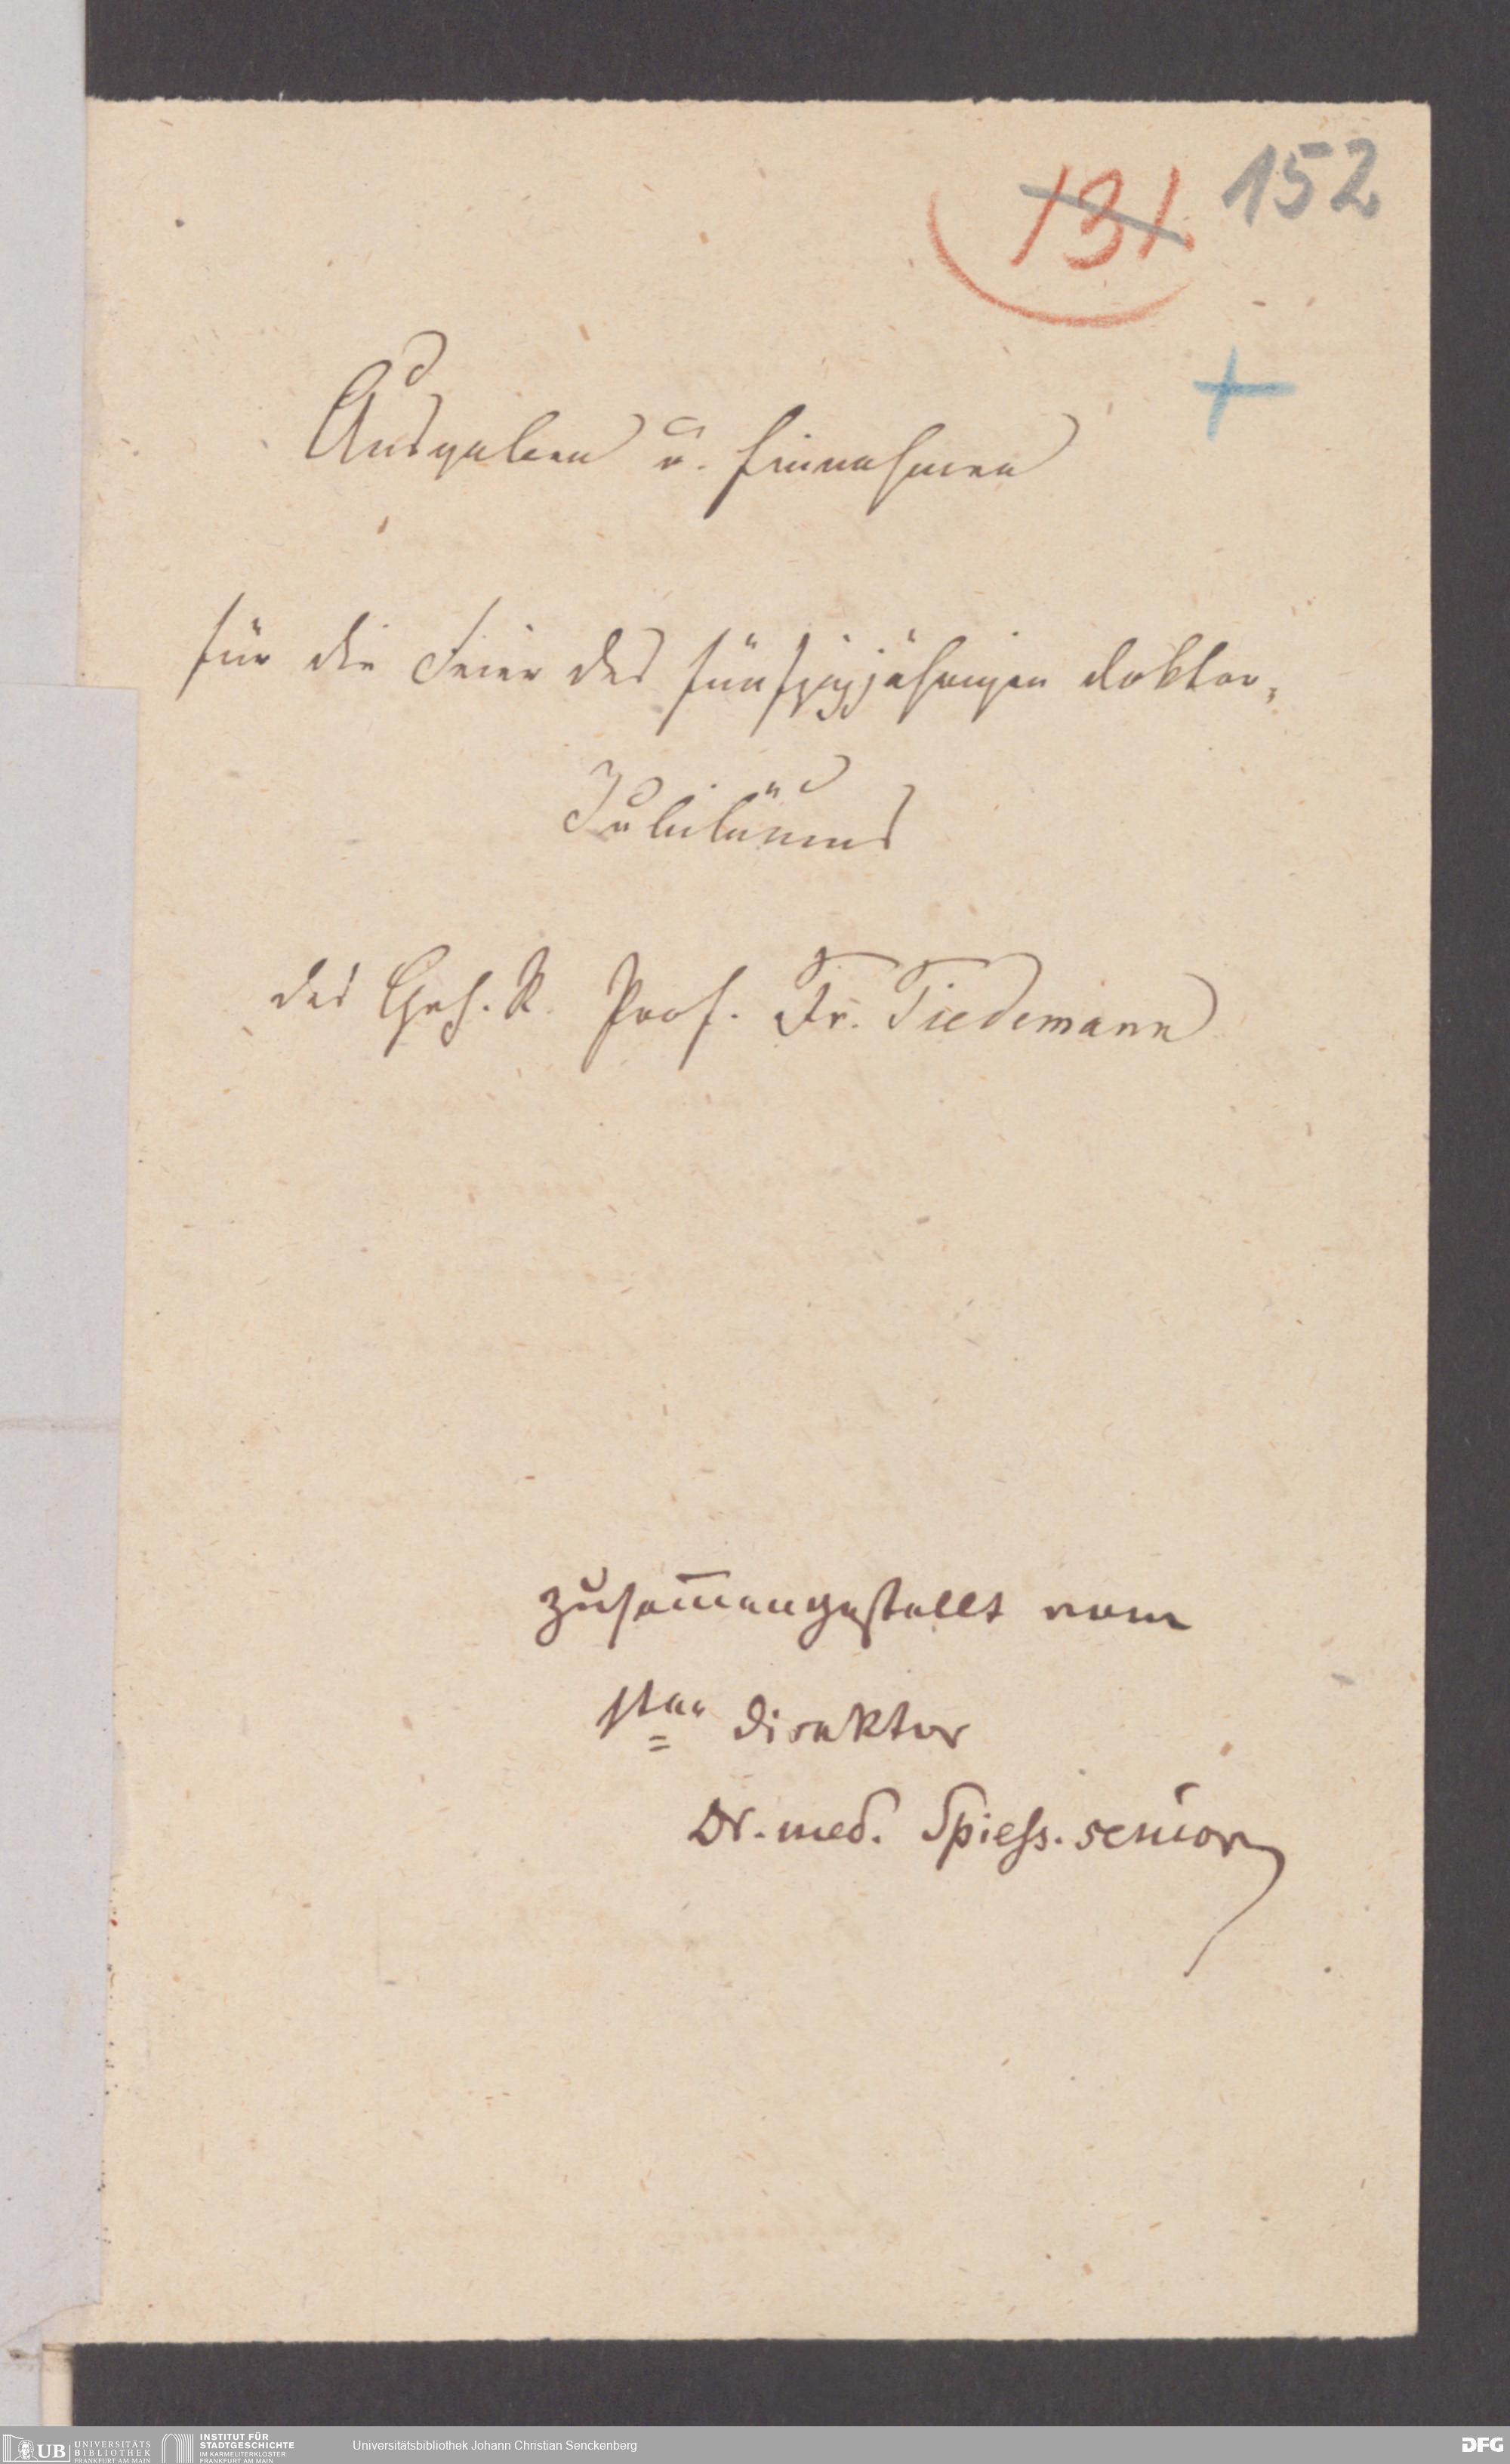 131. 152
+
Ausgaben u. Einnahmen
für die Feier des fünfzigjährigen Doktor-
Jubiläums
des Geh. R. Prof. Fr. Tiedemann
zusam̅engestellt vom
1ten Direktor
Dr. med. Spiess. senior
UB UNIVERSITÄTS BIBLIOTHEK FRANKFURT AM MAIN
INSTITUT FÜR STADTGESCHICHTE IM KARMELITERKLOSTER FRANKFURT AM MAIN
Universitätsbibliothek Johann Christian Senckenberg
DFG